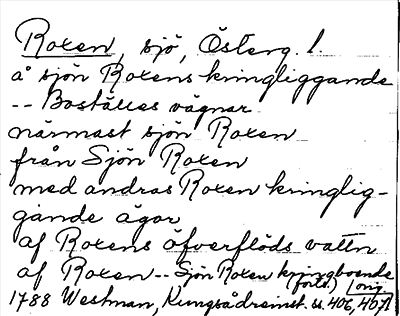 Roxen, sjö, Österg. l.
å sjön Roxens kringliggande
-- Boställes vägnar
närmast sjön Roxen
från Sjön Roxen
med andras Roxen kringlig-
gande ägor
af Roxens öfverflöds vattn
af Roxen -- Sjön Roxen kringboende
forts.) (orig.
1788 Westman, Kungsådreinst. ss. 406, 407)